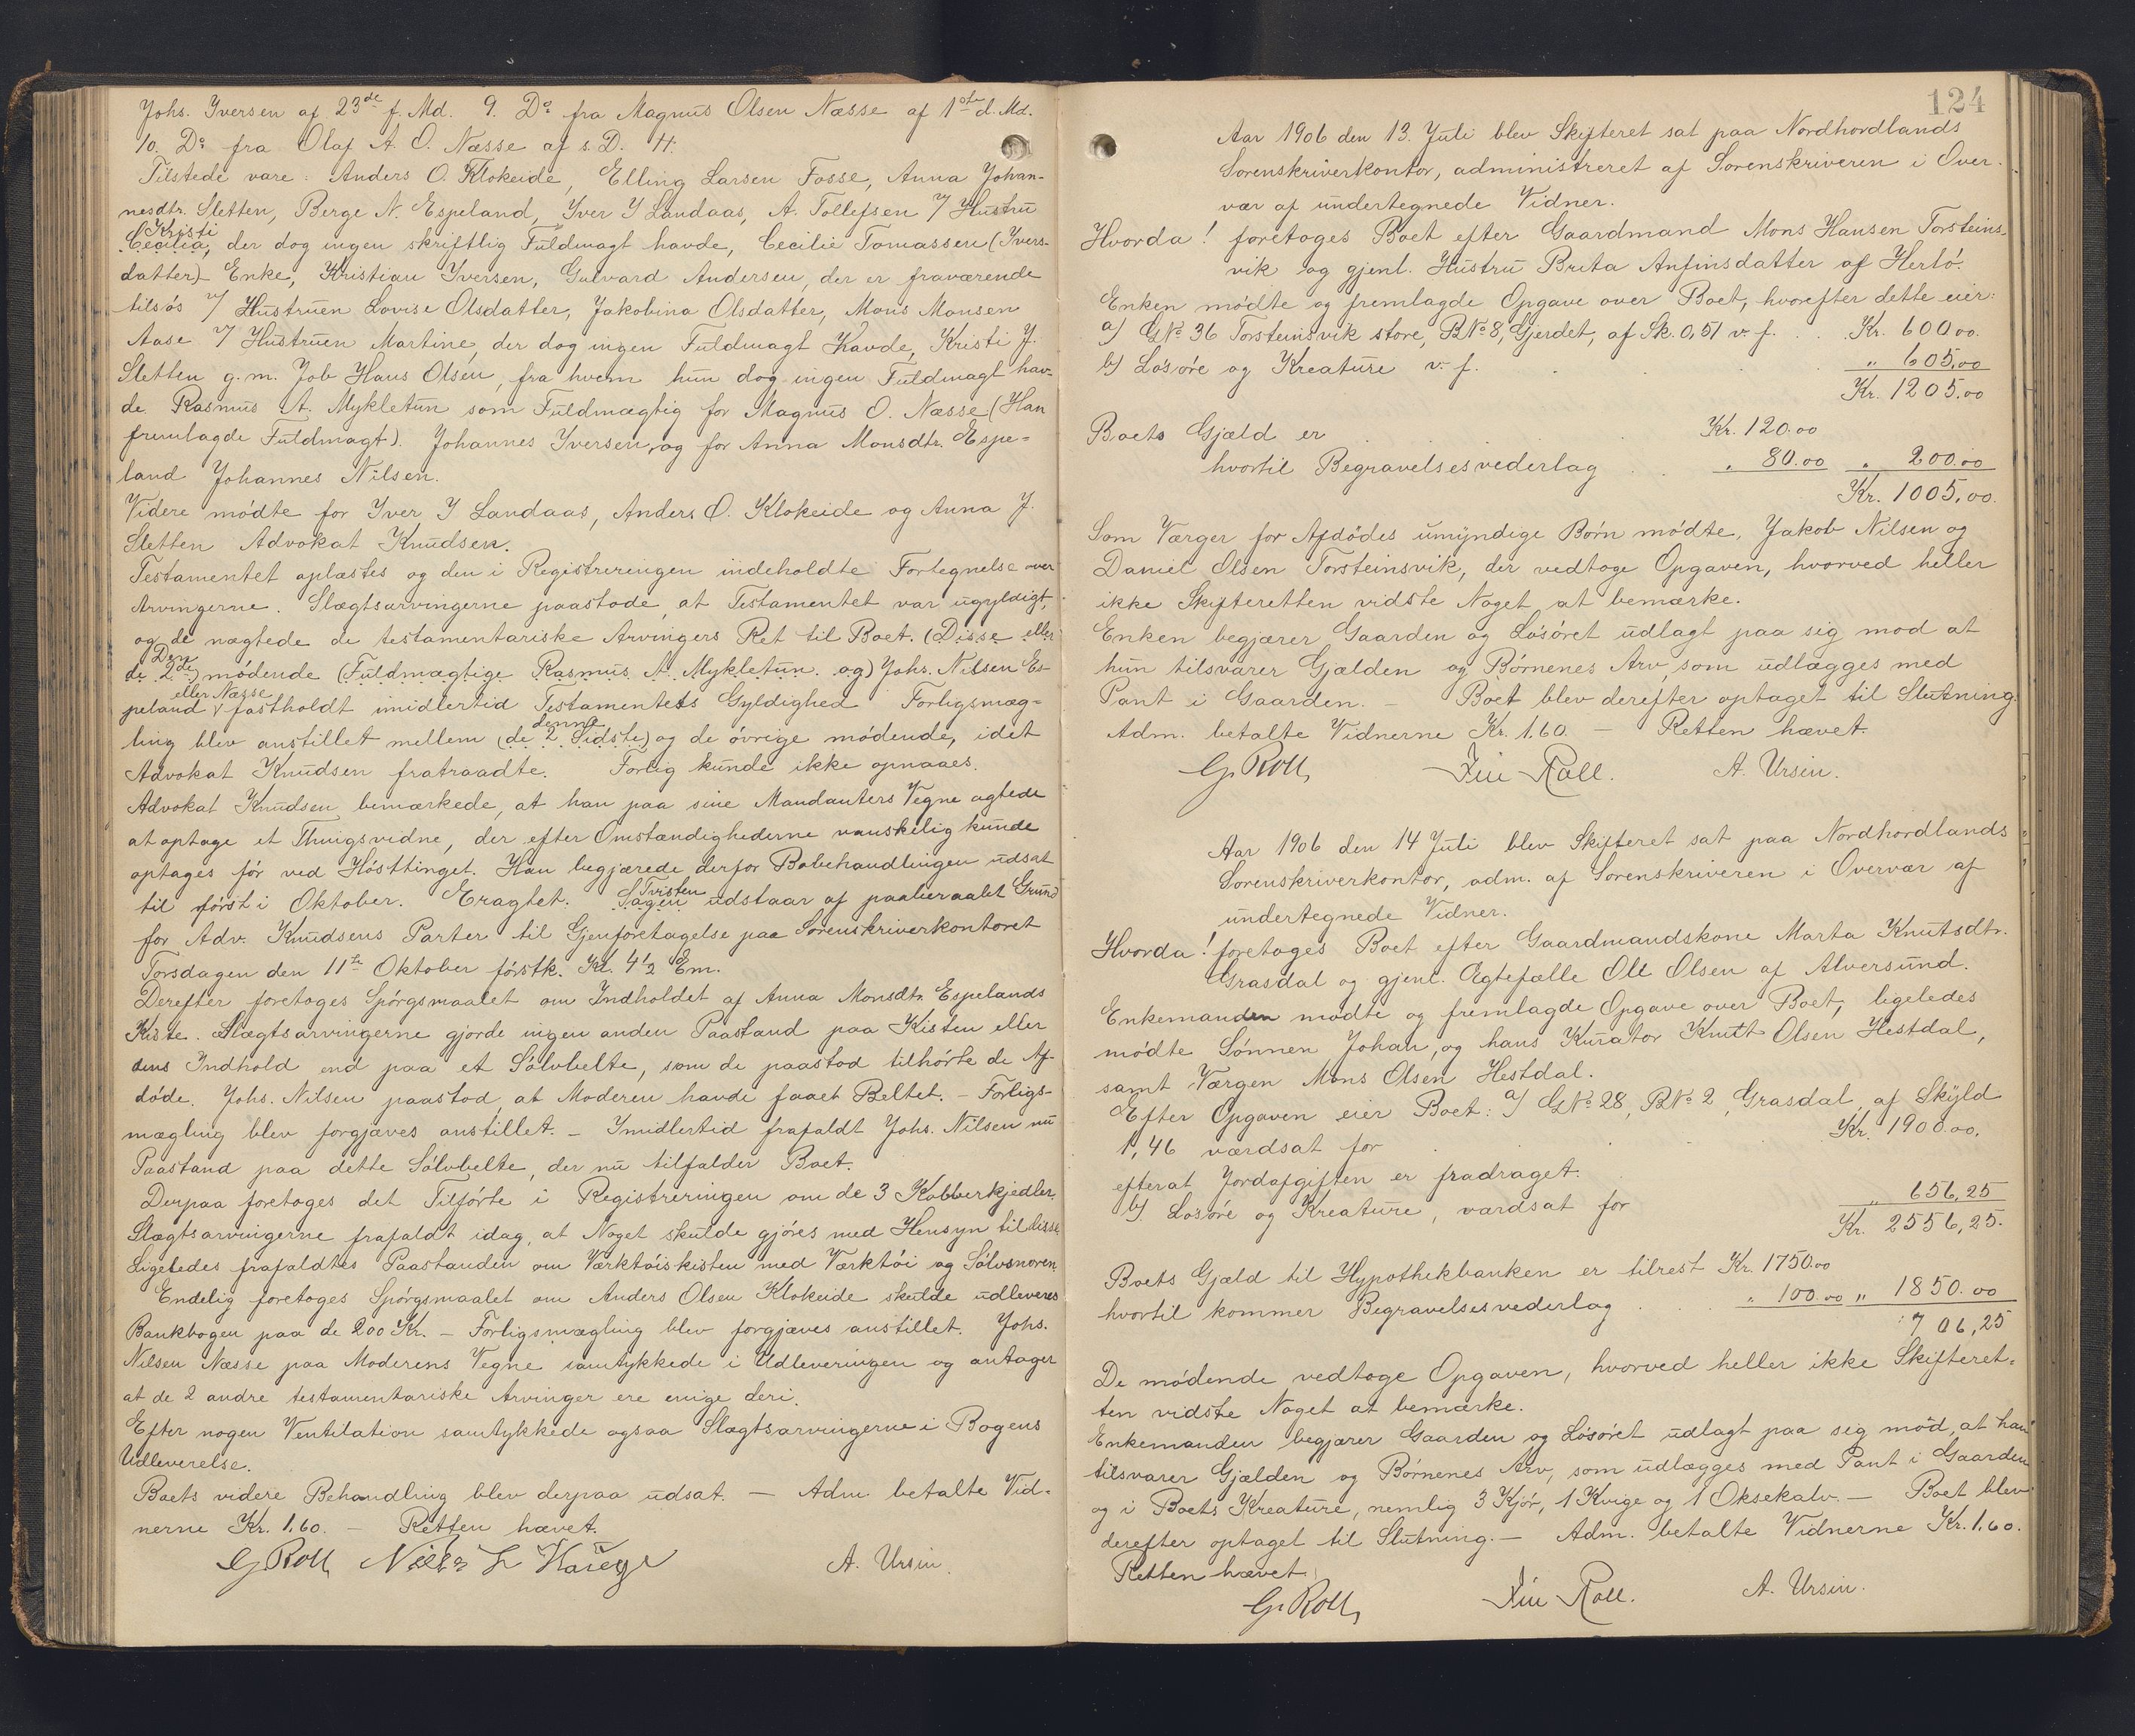 Johs. Iversen af 23de f. Md. 9. Do fra Magnus Olsen Næsse af 1ste d. Md.
10. Do fra Olaf A. O. Næsse af s. D.
Tilstede vare: Anders O. Klokeide, Elling Larsen Fosse, Anna Johan-
nesdtr. Sletten, Berge N. Espeland, Iver I Landaas, A. Tollefsen m/ Hustru
Kristi
Cecilia, der dog ingen skriftlig Fuldmagt havde, Cecilie Tomassen (Ivers-
datter) Enke, Kristian Iversen, Gulvard Andersen, der er fraværende
tilsøs m/ Hustruen Lovise Olsdatter, Jakobina Olsdatter, Mons Monsen
Aase m/ Hustruen Martine, der dog ingen Fuldmagt havde, Kristi J.
Sletten g. m. Job Hans Olsen, fra hvem hun dog ingen Fuldmagt hav-
de Rasmus A. Mykletun som Fuldmægtig for Magnus O. Næsse (Han
fremlagde Fuldmagt). Johannes Iversen, og for Anna Monsdtr. Espe-
land Johannes Nilsen.
Videre mødte for Iver I Landaas, Anders O. Klokeide og Anna J.
Sletten Advokat Knudsen.
Testamentet oplæstes og den i Registreringen indeholdte Fortegnelse over
Arvingerne. Slægtsarvingerne paastode, at Testamentet var ugyldigt,
og de nægtede de testamentariske Arvingers Ret til Boet. (Disse eller
Den
de 2de) mødende (Fuldmægtige Rasmus A Mykletun og) Johs. Nilsen Es-
eller Næsse
peland fastholdt imidlertid Testamentets Gyldighed Forligsmæg-
denne
ling blev anstillet mellem (de 2 Sidste) og de øvrige mødende, idet
Advokat Knudsen fratraadte. Forlig kunde ikke opnaaes.
Advokat Knudsen bemærkede, at han paa sine Mandanters Vegne agtede
at optage et Thingsvidne, der efter Omstændighederne vanskelig kunde
optages før ved Høsttinget. Han begjærede derfor Bobehandlingen udsat
til først i Oktober. Eragtet. Tvisten
Sagen udstaar af paaberaabt Grund
for Adv. Knudsens Parter til Gjenforetagelse paa Sorenskriverkontoret
Torsdagen den 11te Oktober førstk. Kl. 4½ Em.
Derefter foretoges Spørgsmaalet om Indholdet af Anna Monsdtr. Espelands
Kiste. Slægtsarvingerne gjorde ingen anden Paastand paa Kisten eller
dens Indhold end paa et Sølvbelte, som de paastod tilhørte de Af-
døde. Johs. Nilsen paastod, at Moderen havde faaet Beltet. – Forligs-
mægling blev forgjæves anstillet. – Imidlertid frafaldt Johs. Nilsen nu
Paastand paa dette Sølvbelte, der nu tilfalder Boet.
Derpaa foretoges det Tilførte i Registreringen om de 3 Kobberkjedler.
Slægtsarvingerne frafaldt idag, at Noget skulde gjøres med Hensyn til disse
Ligeledes frafaldtes Paastanden om Værktøiskisten med Værktøi og Sølvsnoren
Endelig foretoges Spørgsmaalet om Anders Olsen Klokeide skulde udleveres
Bankbogen paa de 200 Kr. – Forligsmægling blev forgjæves anstillet. Johs.
Nilsen Næsse paa Moderens Vegne samtykkede i Udleveringen og antager
at de 2 andre testamentariske Arvinger ere enige deri.
Efter nogen Ventilation samtykkede ogsaa Slægtsarvingerne i Bogens
Udleverelse.
Boets videre Behandling blev derpaa udsat. – Adm. betalte Vid-
nerne Kr. 1.60. – Retten hævet.
G. Roll A. Ursin.
124
Aar 1906 den 13. Juli blev Skifteret sat paa Nordhordlands
Sorenskriverkontor, administreret af Sorenskriveren i Over-
vær af undertegnede Vidner.
Hvorda! foretoges Boet efter Gaardmand Mons Hansen Torsteins-
vik og gjenl. Hustru Brita Anfinsdatter af Herlø.
Enken mødte og fremlagde Opgave over Boet, hvorefter dette eier:
a) GNo 36 Torsteinsvik store, BNo 8, Gjerdet, af Sk. 0,51 v. f. . . Kr. 600.00.
b) Løsøre og Kreature v. f. . . . " 605,00
Kr. 1205.00
Boets Gjæld er . . Kr. 120.00
hvortil Begravelsesvederlag . " 80.00 " 200.00
Kr. 1005,00.
Som Værger for Afdødes umyndige Børn mødte, Jakob Nilsen og
Daniel Olsen Torsteinsvik, der vedtoge Opgaven, hvorved heller
ikke Skifteretten vidste Noget at bemærke.
Enken begjærer Gaarden og Løsøret udlagt paa sig mod at
hun tilsvarer Gjælden og Børnenes Arv, som udlægges med
Pant i Gaarden. – Boet blev derefter optaget til Slutning.
Adm. betalte Vidnerne Kr. 1.60. – Retten hævet.
G. Roll Fin Roll. A. Ursin.
Aar 1906 den 14 Juli blev Skifteret sat paa Nordhordlands
Sorenskriverkontor, adm. af Sorenskriveren i Overvær af
undertegnede Vidner.
Hvorda! foretoges Boet efter Gaardmandskone Marta Knutsdtr.
Grasdal og gjenl. Ægtefælle Ole Olsen af Alversund.
Enkemanden mødte og fremlagde Opgave over Boet, ligeledes
mødte Sønnen Johan, og hans Kurator Knut Olsen Hestdal,
samt Værgen Mons Olsen Hestdal.
Efter Opgaven eier Boet: a) GNo 28, BNo 2, Grasdal, af Skyld
1,46 værdsat for . . . Kr. 1900.00.
efterat Jordafgiften er fradraget.
b) Løsøre og Kreature, værdsat for " 656,25
Kr. 2556,25.
Boets Gjæld til Hypothekbanken er tilrest Kr. 1750.00
hvortil kommer Begravelsesvederlag . . " 100.00 " 1850.00
706,25
De mødende vedtoge Opgaven, hvorved heller ikke Skifteret-
ten vidste Noget at bemærke.
Enkemanden begjærer Gaarden og Løsøret udlagt paa sig mod, at han
tilsvarer Gjælden og Børnenes Arv, som udlægges med Pant i Gaarden
og i Boets Kreature, nemlig 3 Kjør, 1 Kvige og 1 Oksekalv. – Boet blev
derefter optaget til Slutning. – Adm. betalte Vidnerne Kr. 1.60.
Retten hævet.
G. Roll Fin Roll. A. Ursin.